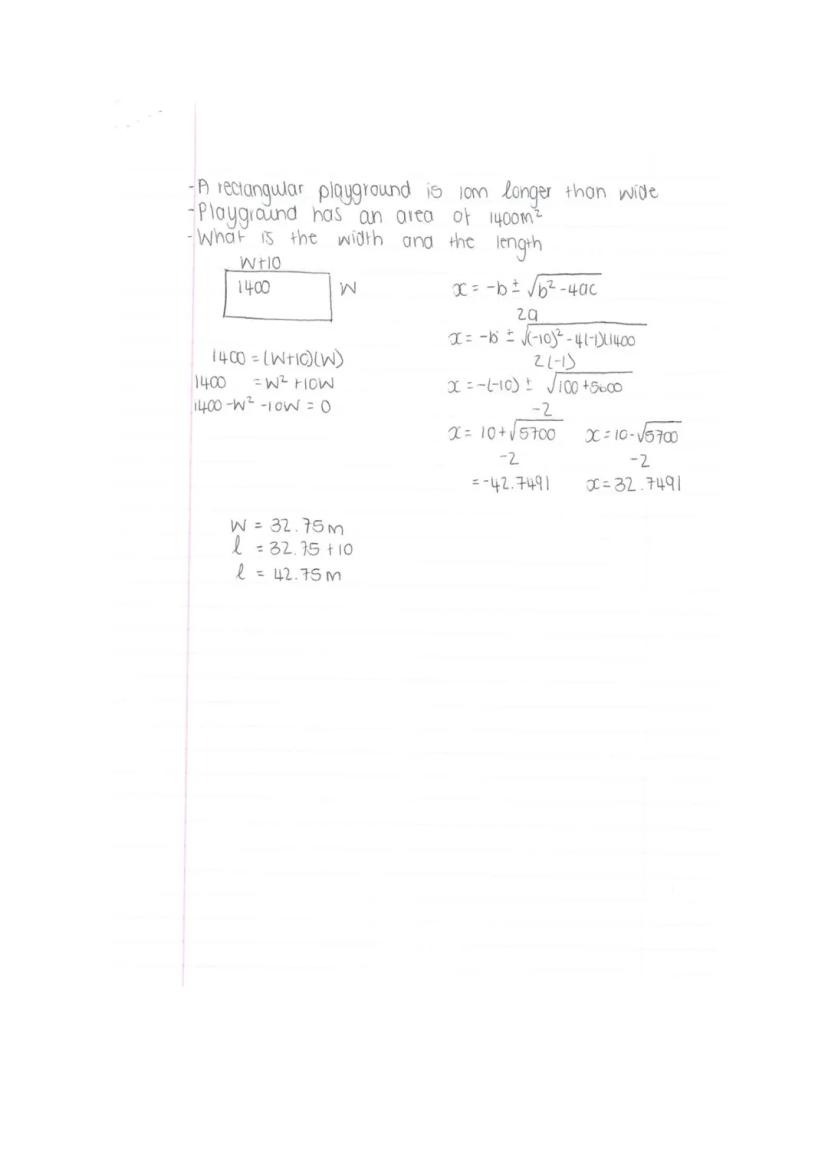 -A rectangular playground is 10m longer than wide
-Playground has an area of 1400m²
-What is the width and the length
W+10
1400
W
1400 = (W+10)(W)
1400 = W² +10W
1400 -W² -10W = 0
x = -b ± √b² -4ac
2a
x = -b ± √(-10)² -4(-1)(1400
2(-1)
x = -(-10) ± √100 +5600
-2
x = 10+√5700 x = 10-√5700
-2 -2
= -42.7491 x = 32.7491
W = 32.75m
l = 32.75 +10
l = 42.75m